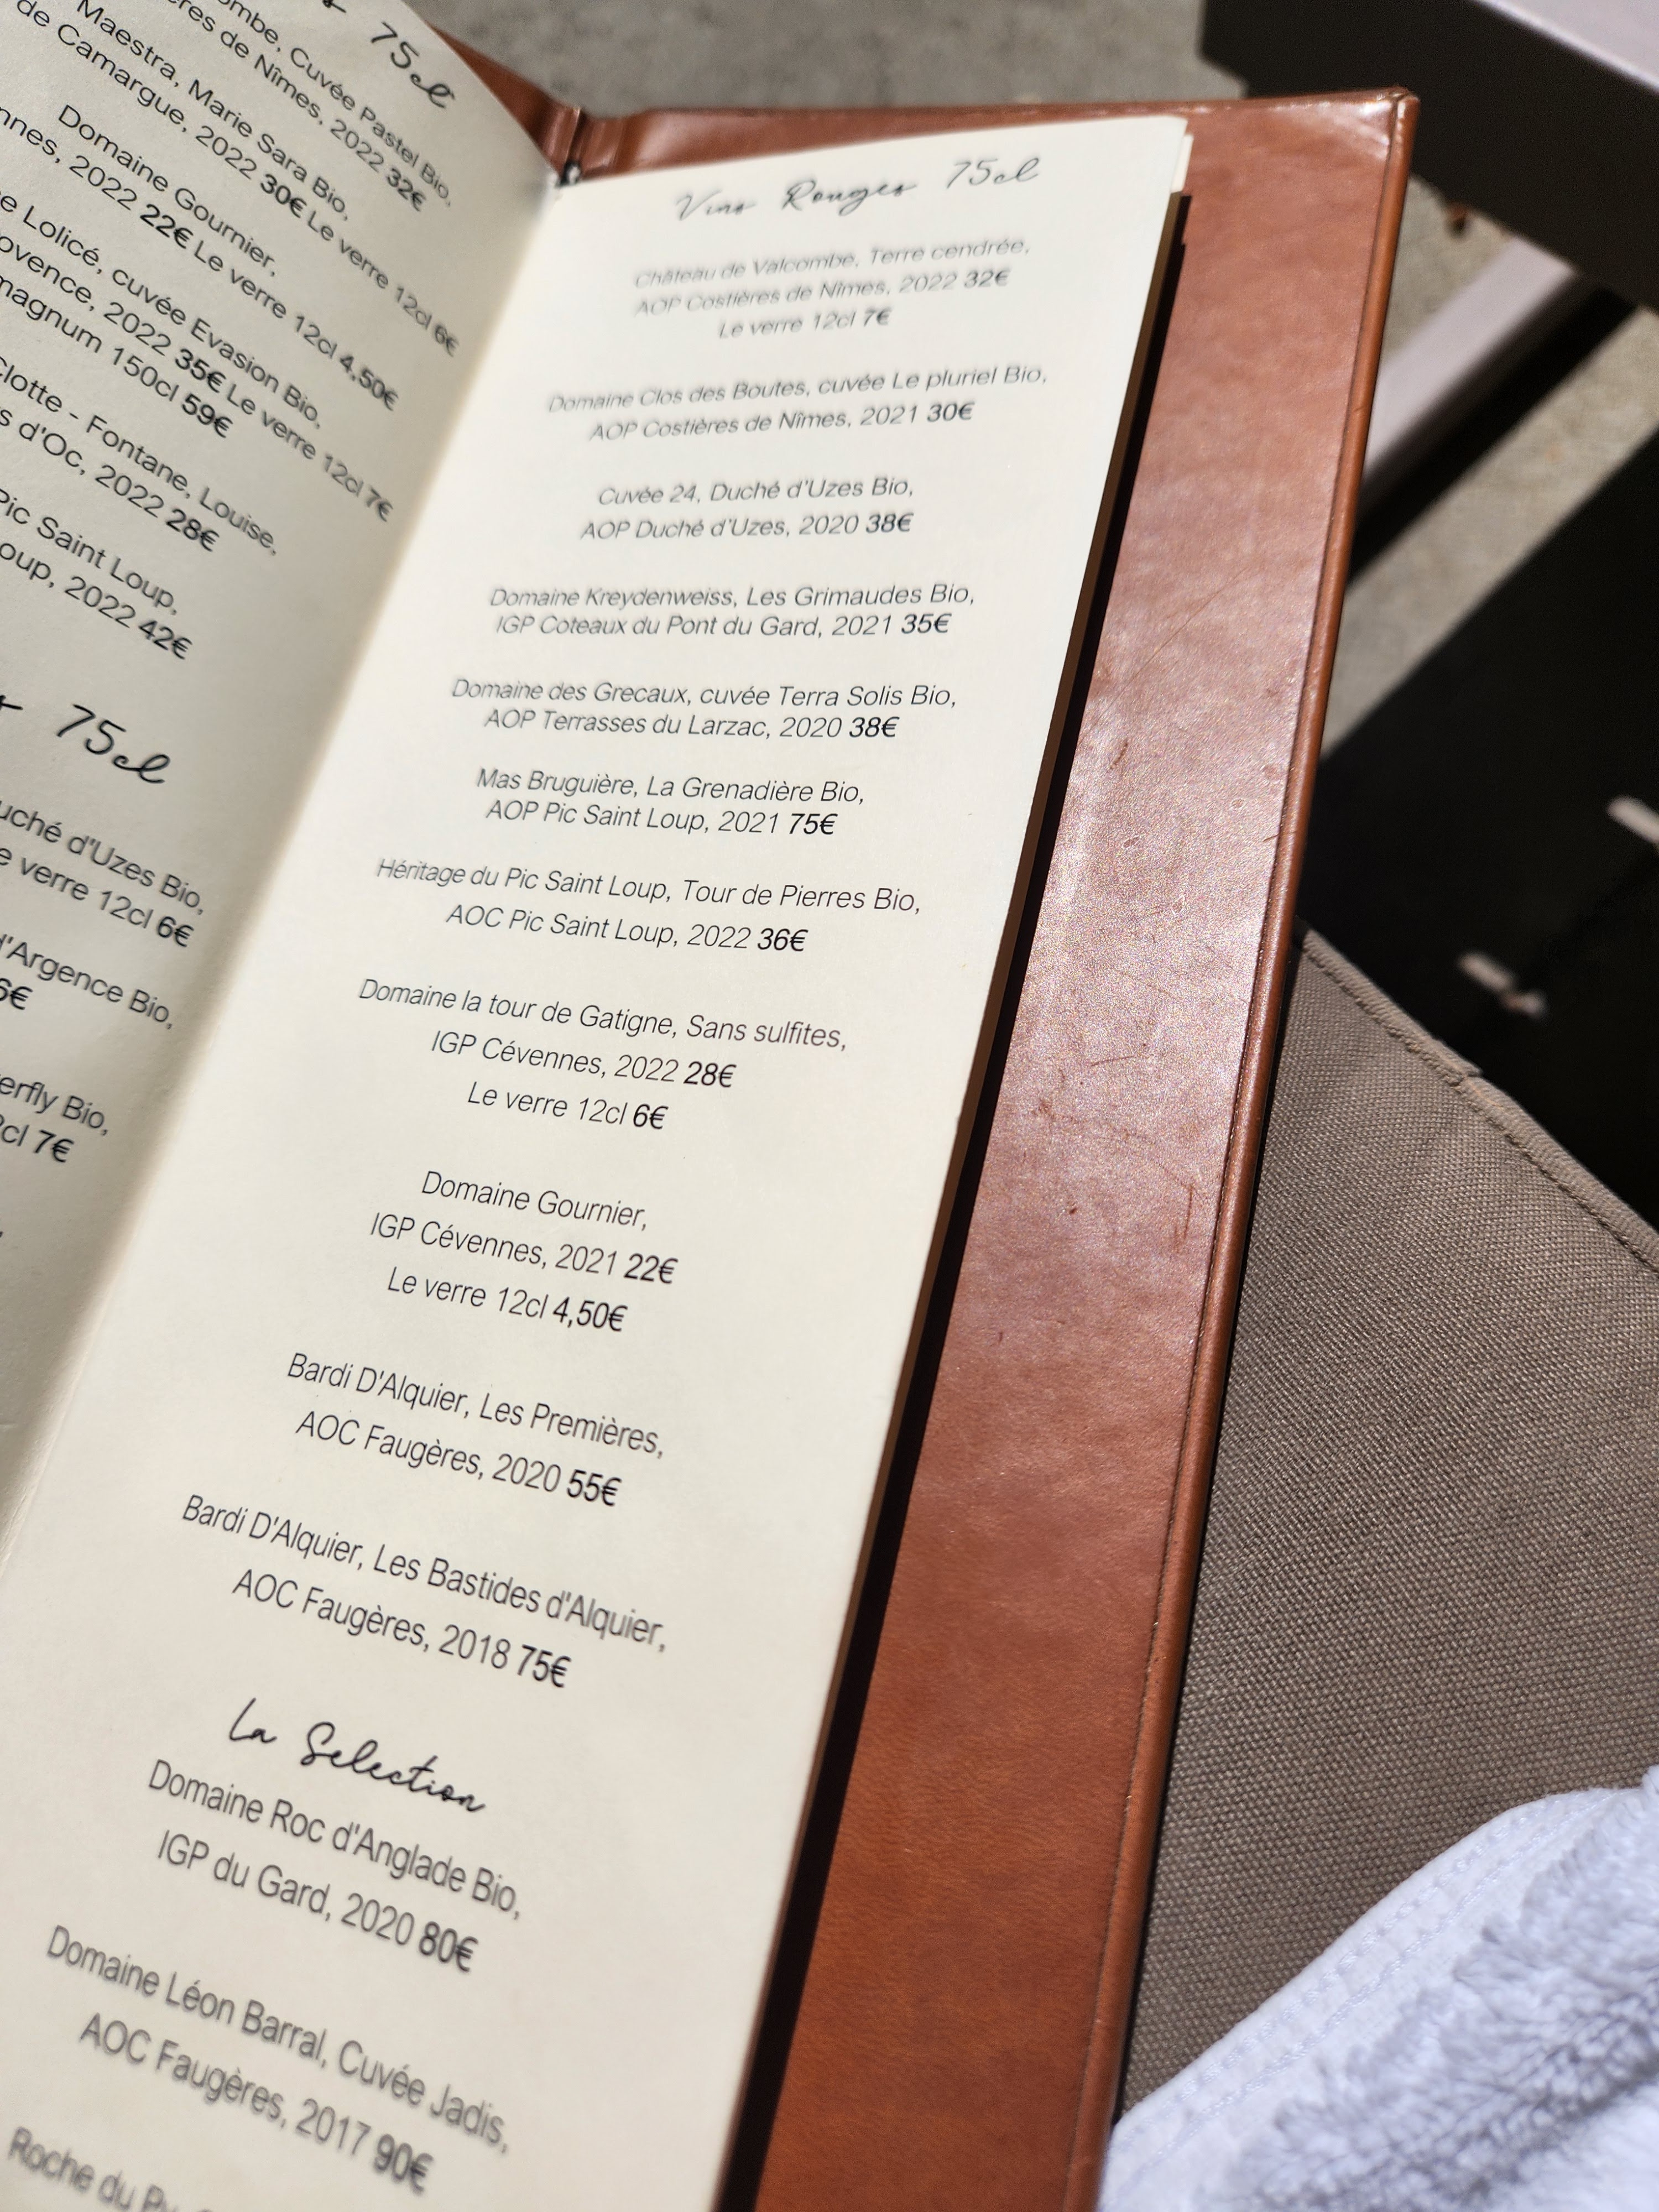 75cl
Cuvée Pastel Bio,
de Nîmes, 2022 32€
Maestra, Marie Sara Bio,
de Camargue, 2022 30€ Le verre 12cl 6€
Domaine Gournier,
2022 22€ Le verre 12cl 4,50€
Lolicé, cuvée Evasion Bio,
2022 35€ Le verre 12cl 7€
magnum 150cl 59€
- Fontane, Louise,
d'Oc, 2022 28€
Pic Saint Loup,
2022 42€
75cl
d'Uzes Bio,
verre 12cl 6€
d'Argence Bio,
Bio,
7€
Vins Rouges 75cl
Château de Valcombe, Terre cendrée,
AOP Costières de Nîmes, 2022 32€
Le verre 12cl 7€
Domaine Clos des Boutes, cuvée Le pluriel Bio,
AOP Costières de Nîmes, 2021 30€
Cuvée 24, Duché d'Uzes Bio,
AOP Duché d'Uzes, 2020 38€
Domaine Kreydenweiss, Les Grimaudes Bio,
IGP Coteaux du Pont du Gard, 2021 35€
Domaine des Grecaux, cuvée Terra Solis Bio,
AOP Terrasses du Larzac, 2020 38€
Mas Bruguière, La Grenadière Bio,
AOP Pic Saint Loup, 2021 75€
Héritage du Pic Saint Loup, Tour de Pierres Bio,
AOC Pic Saint Loup, 2022 36€
Domaine la tour de Gatigne, Sans sulfites,
IGP Cévennes, 2022 28€
Le verre 12cl 6€
Domaine Gournier,
IGP Cévennes, 2021 22€
Le verre 12cl 4,50€
Bardi D'Alquier, Les Premières,
AOC Faugères, 2020 55€
Bardi D'Alquier, Les Bastides d'Alquier,
AOC Faugères, 2018 75€
La Selection
Domaine Roc d'Anglade Bio,
IGP du Gard, 2020 80€
Domaine Léon Barral, Cuvée Jadis,
AOC Faugères, 2017 90€
Roche du